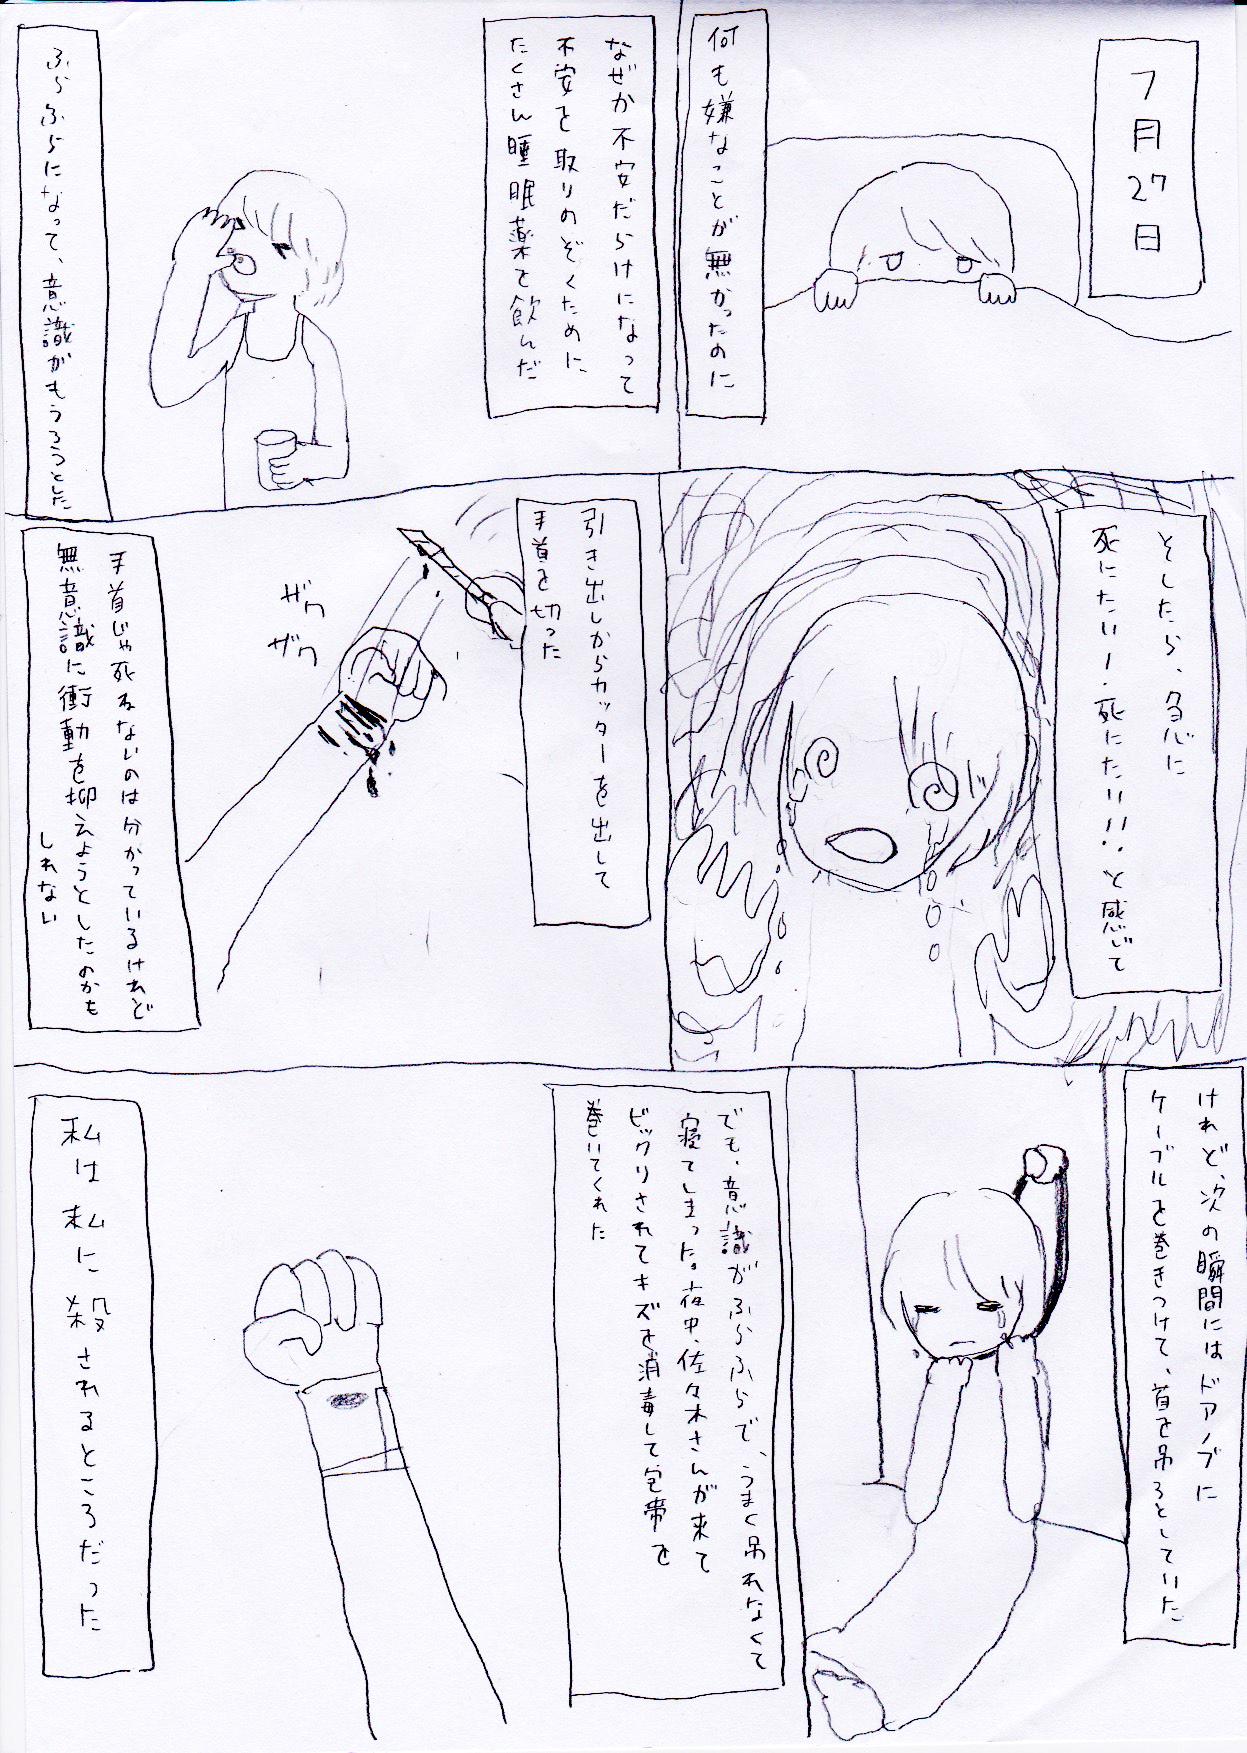 7月27日
何も嫌なことが無かったのに
なぜか不安だらけになって
不安を取りのぞくために
たくさん睡眠薬を飲んだ
ふらふらになって、意識がもうろうとした
そしたら、急に
死にたい！死にたい!!と感じて
引き出しからカッターを出して
手首を切った
ザク
ザク
手首じゃ死ねないのは分かっているけれど
無意識に衝動を抑えようとしたのかも
しれない
けれど、次の瞬間にはドアノブに
ケーブルを巻きつけて、首を吊ろうとしていた
でも、意識がふらふらで、うまく吊れなくて
寝てしまった。夜中、佐々木さんが来て
ビックリされてキズを消毒して包帯を
巻いてくれた
私は私に殺されるところだった